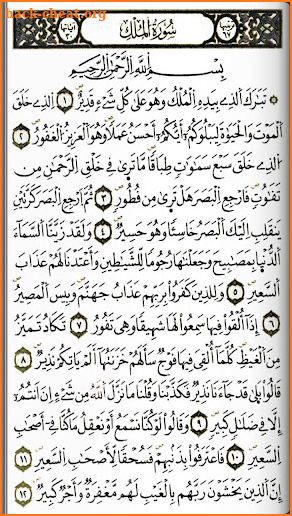 ترتيبها ٦٧
سُورَةُ الْمُلْكِ
آياتها
بِسْمِ اِللَّهِ اِلرَّحْمَٰنِ اِلرَّحِيمِ
تَبَٰرَكَ اَلذِے بِيَدِهِ اِلْمُلْكُ وَهُوَ عَلَىٰ كُلِّ شَےْءٖ قَدِيرٌ ١ اِلذِے خَلَقَ
اَلْمَوْتَ وَالْحَيَوٰةَ لِيَبْلُوَكُمُۥٓ أَيُّكُمُۥٓ أَحْسَنُ عَمَلٗا وَهُوَ اَلْعَزِيزُ اُلْغَفُورُ ٢
اُلذِے خَلَقَ سَبْعَ سَمَٰوَٰتٖ طِبَاقٗا مَّا تَر۪ىٰ فِے خَلْقِ اِلرَّحْمَٰنِ مِن
تَفَٰوُتٖ فَارْجِعِ اِلْبَصَرَ هَلْ تَر۪ىٰ مِن فُطُورٖ ٣ ثُمَّ اَرْجِعِ اِلْبَصَرَ كَرَّتَيْنِ
يَنقَلِبِ اِلَيْكَ اَلْبَصَرُ خَاسِئٗا وَهُوَ حَسِيرٌ ٤ وَلَقَدْ زَيَّنَّا اَلسَّمَآءَ
اَلدُّنْي۪ا بِمَصَٰبِيحَ وَجَعَلْنَٰهَا رُجُومٗا لِّلشَّيَٰطِينِ وَأَعْتَدْنَا لَهُمْ عَذَابَ
اَلسَّعِيرِ ٥ وَلِلذِينَ كَفَرُواْ بِرَبِّهِمْ عَذَابُ جَهَنَّمَ وَبِيسَ اَلْمَصِيرُ
٦ إِذَآ أُلْقُواْ فِيهَا سَمِعُواْ لَهَا شَهِيقٗا وَهِيَ تَفُورُ ٧ تَكَادُ تَمَيَّزُ
مِنَ اَلْغَيْظِ كُلَّمَآ أُلْقِيَ فِيهَا فَوْجٞ سَأَلَهُمْ خَزَنَتُهَآ أَلَمْ يَاتِكُمْ نَذِيرٞ ٨
قَالُواْ بَل۪ىٰ قَدْ جَآءَنَا نَذِيرٞ فَكَذَّبْنَا وَقُلْنَا مَا نَزَّلَ اَللَّهُ مِن شَےْءٍ اِنَ اَنتُمُۥٓ
إِلَّا فِے ضَلَٰلٖ كَبِيرٖ ٩ وَقَالُواْ لَوْ كُنَّا نَسْمَعُ أَوْ نَعْقِلُ مَا كُنَّا فِےٓ أَصْحَٰبِ
اِلسَّعِيرِ ١٠ فَاعْتَرَفُواْ بِذَنۢبِهِمْ فَسُحْقٗا لِّأَصْحَٰبِ اِلسَّعِيرِ ١١
إِنَّ اَلذِينَ يَخْشَوْنَ رَبَّهُم بِالْغَيْبِ لَهُم مَّغْفِرَةٞ وَأَجْرٞ كَبِيرٞ ١٢